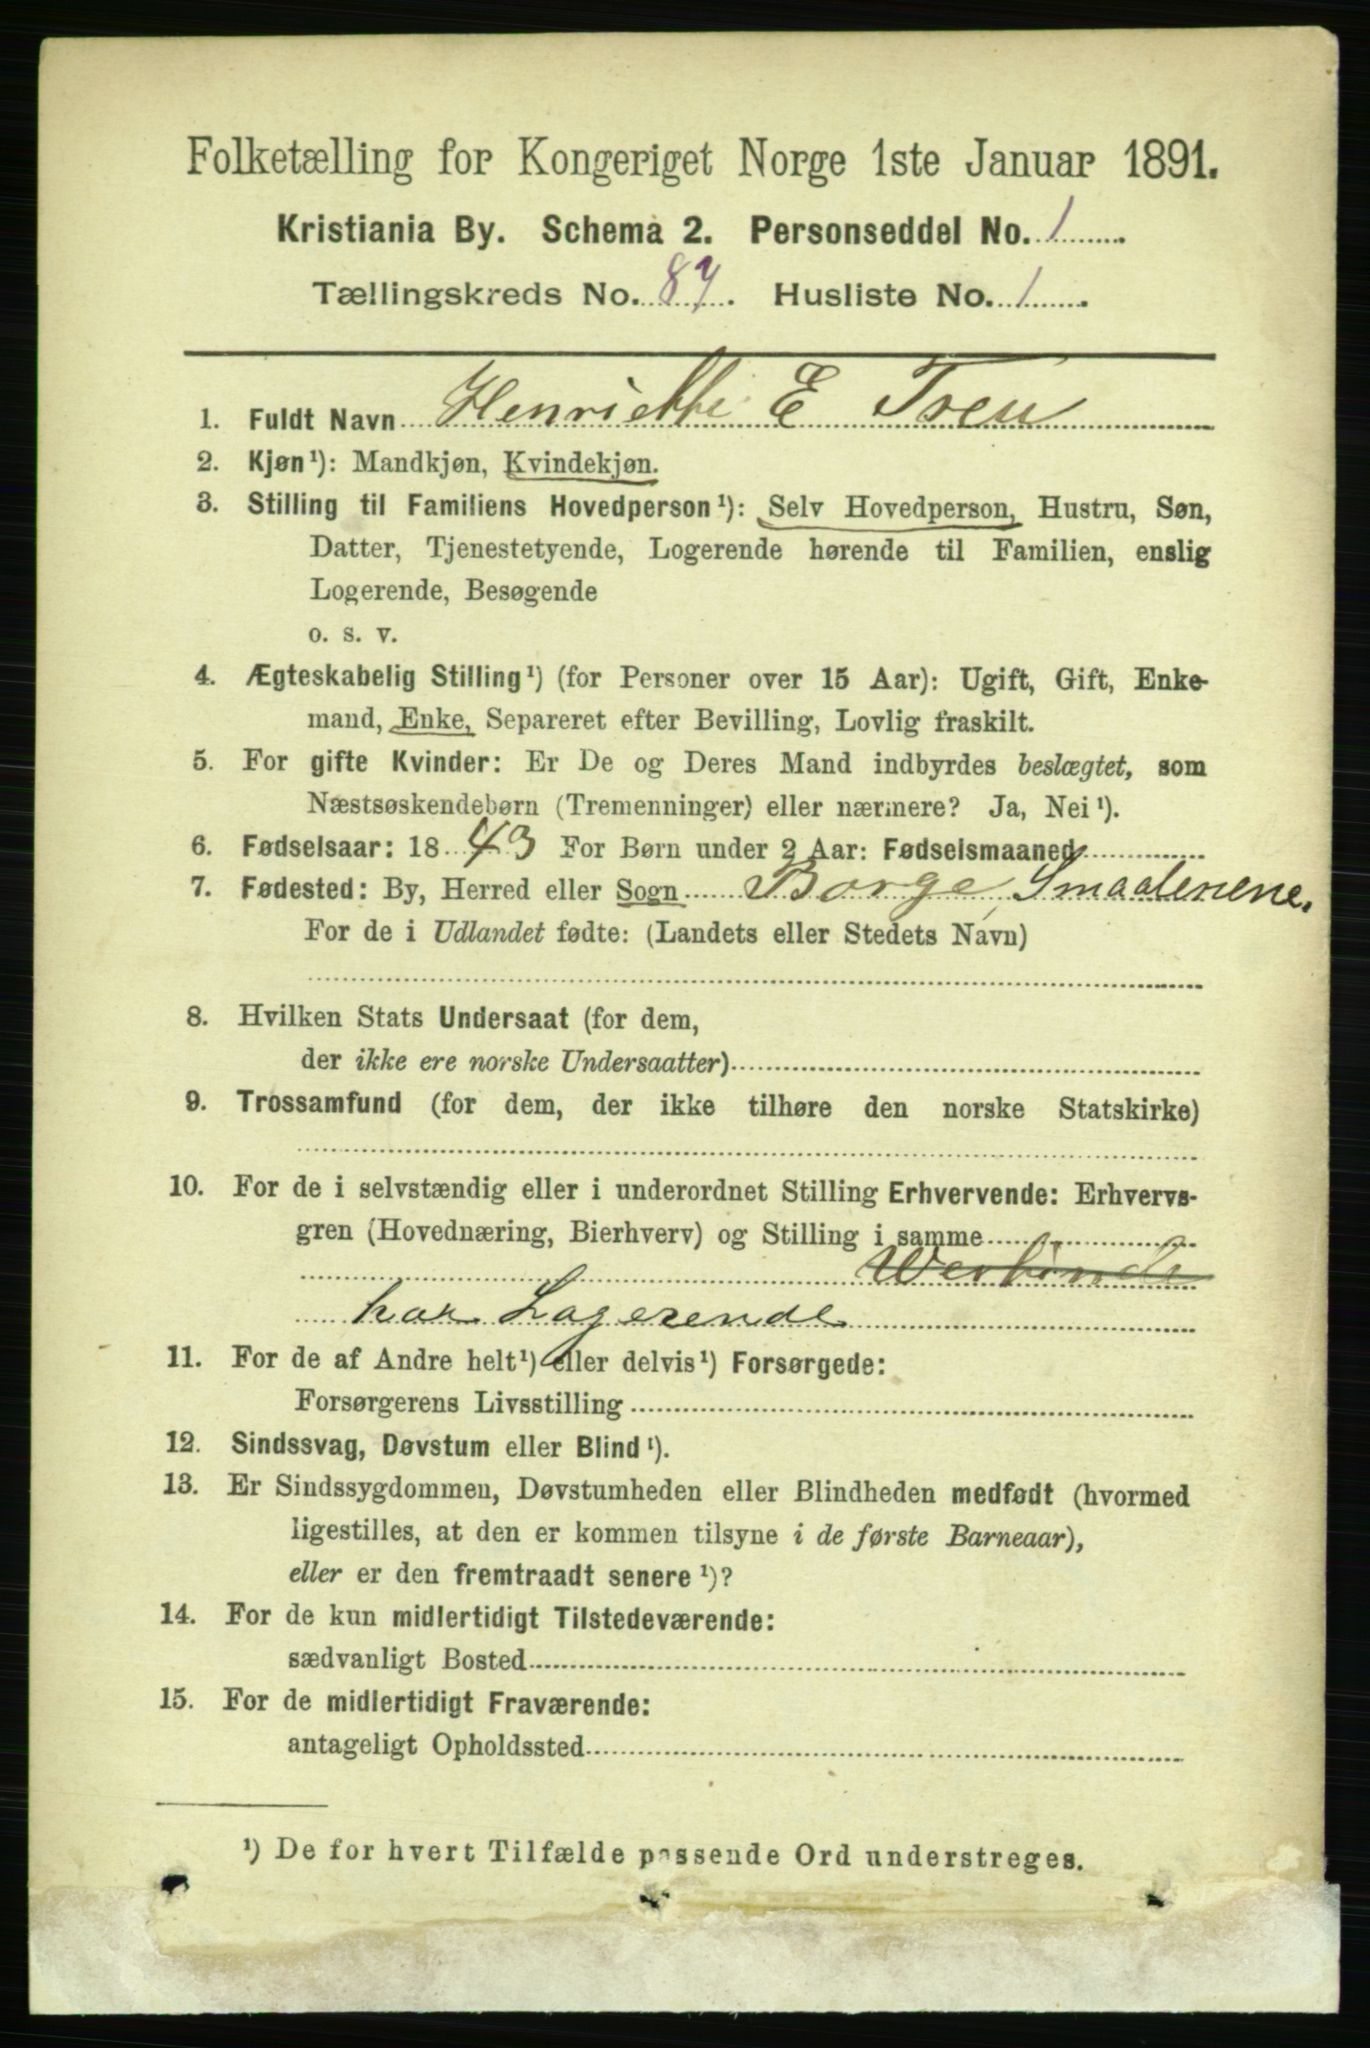 Folketælling for Kongeriget Norge 1ste Januar 1891.
Kristiania By. Schema 2. Personseddel No. 1
Tællingskreds No. 87. Husliste No. 1.
1. Fuldt Navn Henriette E Treu
2. Kjøn¹): Mandkjøn, Kvindekjøn.
3. Stilling til Familiens Hovedperson¹): Selv Hovedperson, Hustru, Søn,
Datter, Tjenestetyende, Logerende hørende til Familien, enslig
Logerende, Besøgende
o. s. v.
4. Ægteskabelig Stilling¹) (for Personer over 15 Aar): Ugift, Gift, Enke-
mand, Enke, Separeret efter Bevilling, Lovlig fraskilt.
5. For gifte Kvinder: Er De og Deres Mand indbyrdes beslægtet, som
Næstsøskendebørn (Tremenninger) eller nærmere? Ja, Nei¹).
6. Fødselsaar: 1843 For Børn under 2 Aar: Fødselsmaaned
7. Fødested: By, Herred eller Sogn Borge, Smaalenene.
For de i Udlandet fødte: (Landets eller Stedets Navn)
8. Hvilken Stats Undersaat (for dem,
der ikke ere norske Undersaatter)
9. Trossamfund (for dem, der ikke tilhøre den norske Statskirke)
10. For de i selvstændig eller i underordnet Stilling Erhvervende: Erhvervs-
gren (Hovednæring, Bierhverv) og Stilling i samme
har Logerende
11. For de af Andre helt¹) eller delvis¹) Forsørgede:
Forsørgerens Livsstilling
12. Sindssvag, Døvstum eller Blind¹).
13. Er Sindssygdommen, Døvstumheden eller Blindheden medfødt (hvormed
ligestilles, at den er kommen tilsyne i de første Barneaar),
eller er den fremtraadt senere¹)?
14. For de kun midlertidigt Tilstedeværende:
sædvanligt Bosted
15. For de midlertidigt Fraværende:
antageligt Opholdssted
¹) De for hvert Tilfælde passende Ord understreges.